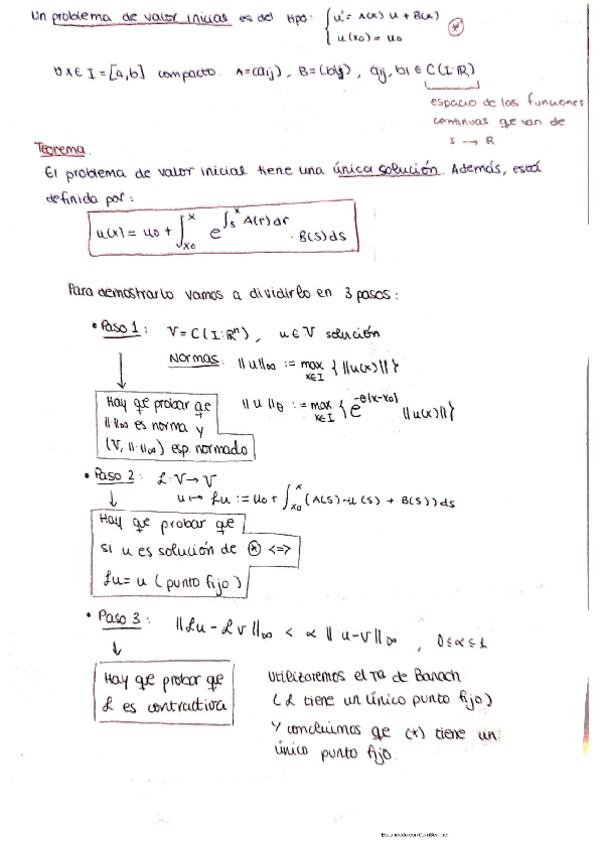 Un problema de valor inicial es del tipo: { u' = A(x) u + B(x)
u(x0) = u0 (*)
∀x ∈ I = [a,b] compacto. A = (aij), B = (bij), aij, bi ∈ C(I:R)
espacio de las funciones
continuas que van de
I → R
Teorema.
El problema de valor inicial tiene una única solución. Además, está
definida por:
u(x) = u0 + ∫_{x0}^{x} e^{∫_s^x A(r)dr} · B(s)ds
Para demostrarlo vamos a dividirlo en 3 pasos:
• Paso 1: V = C(I:Rⁿ), u ∈ V solución
Normas: ||u||∞ := max_{x∈I} {||u(x)||}
||u||θ := max_{x∈I} {e^{-θ|x-x0|} ||u(x)||}
Hay que probar qe
||·||∞ es norma y
(V, ||·||∞) esp. normado
• Paso 2: L: V → V
u ↦ Lu := u0 + ∫_{x0}^{x} (A(s)·u(s) + B(s))ds
Hay que probar qe
si u es solución de (*) <=>
Lu = u (punto fijo)
• Paso 3: ||Lu - Lv||∞ < α ||u-v||∞, 0≤α≤1
Hay que probar que
L es contractiva
Utilizaremos el Tª de Banach
(L tiene un único punto fijo)
Y concluimos qe (*) tiene un
único punto fijo.
Escaneado con CamScanner